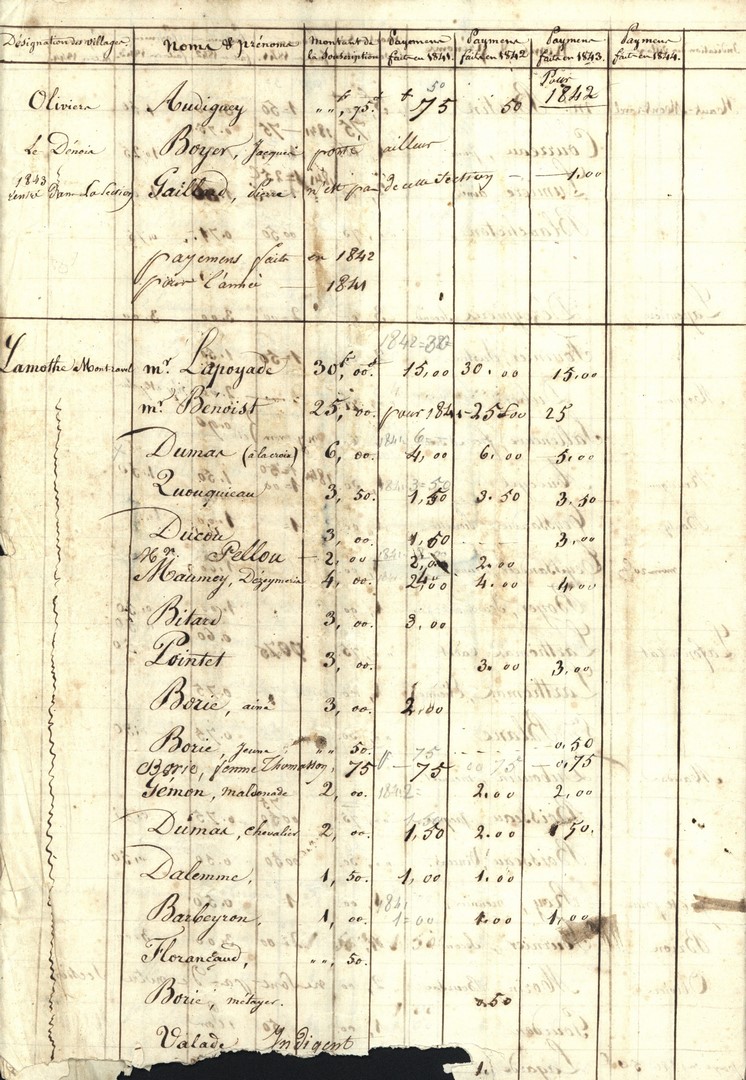 Désignation des villages | Noms & prénoms | montant de la souscription | Payemens faits en 1841. | Paymens faits en 1842 | Paymens faits en 1843. | Paymens faits en 1844.
Pour 1842
Oliviers | Audiguey | " " 75. | 75 | 50
50
Le Dénoix | Boyer, Jacques porté ailleur
1843 rentré dans la Section | Gaillard, Pierre. n'est pas de cette Section — 1.00
payemens faits en 1842
pour l'année — 1841
1842 = 30
Lamothe Montravel | mr. Lapoyade | 30, 00. | 15,00 | 30. 00 | 15,00
mr. Bénoist | 25, 00. | pour 1841 - 25 00 | 25
Dumas (à la croix) | 6, 00. | 4,00 | 6. 00 | 5,00
Zuouquieau | 3, 50. | 1,50 | 3. 50 | 3.50
Ducou | 3, 00. | 1,50 | 3.00
Pellou — | 2, 00 | 2,00 | 2.00
Maumoy, Dézeymeris | 4, 00. | 2,00 | 4. 00 | 4,00
Bitard | 3, 00. | 3, 00
Pointet | 3, 00. | 3. 00 | 3,00
Borie, ainé | 3, 00. | 2,00
Borie, jeune | " " 50. | 75 | 0,50
Borie, femme Thomasson, | 75 | 75 | 00 75 | 0,75
Gémon, maldonade | 2, 00. | 1842 = | 2.00 | 2,00
Dumas, chevalier | 2, 00. | 1,50 | 2.00 | 1 50.
Dalemme, | 1, 50. | 1, 00 | 1.00
Barbeyron, | 1, 00. | 1841 1=00 | 1.00 | 1,00
Florançaud, | " ", 50.
Borie, métayer. | 0.50
Valade Indigent
1.